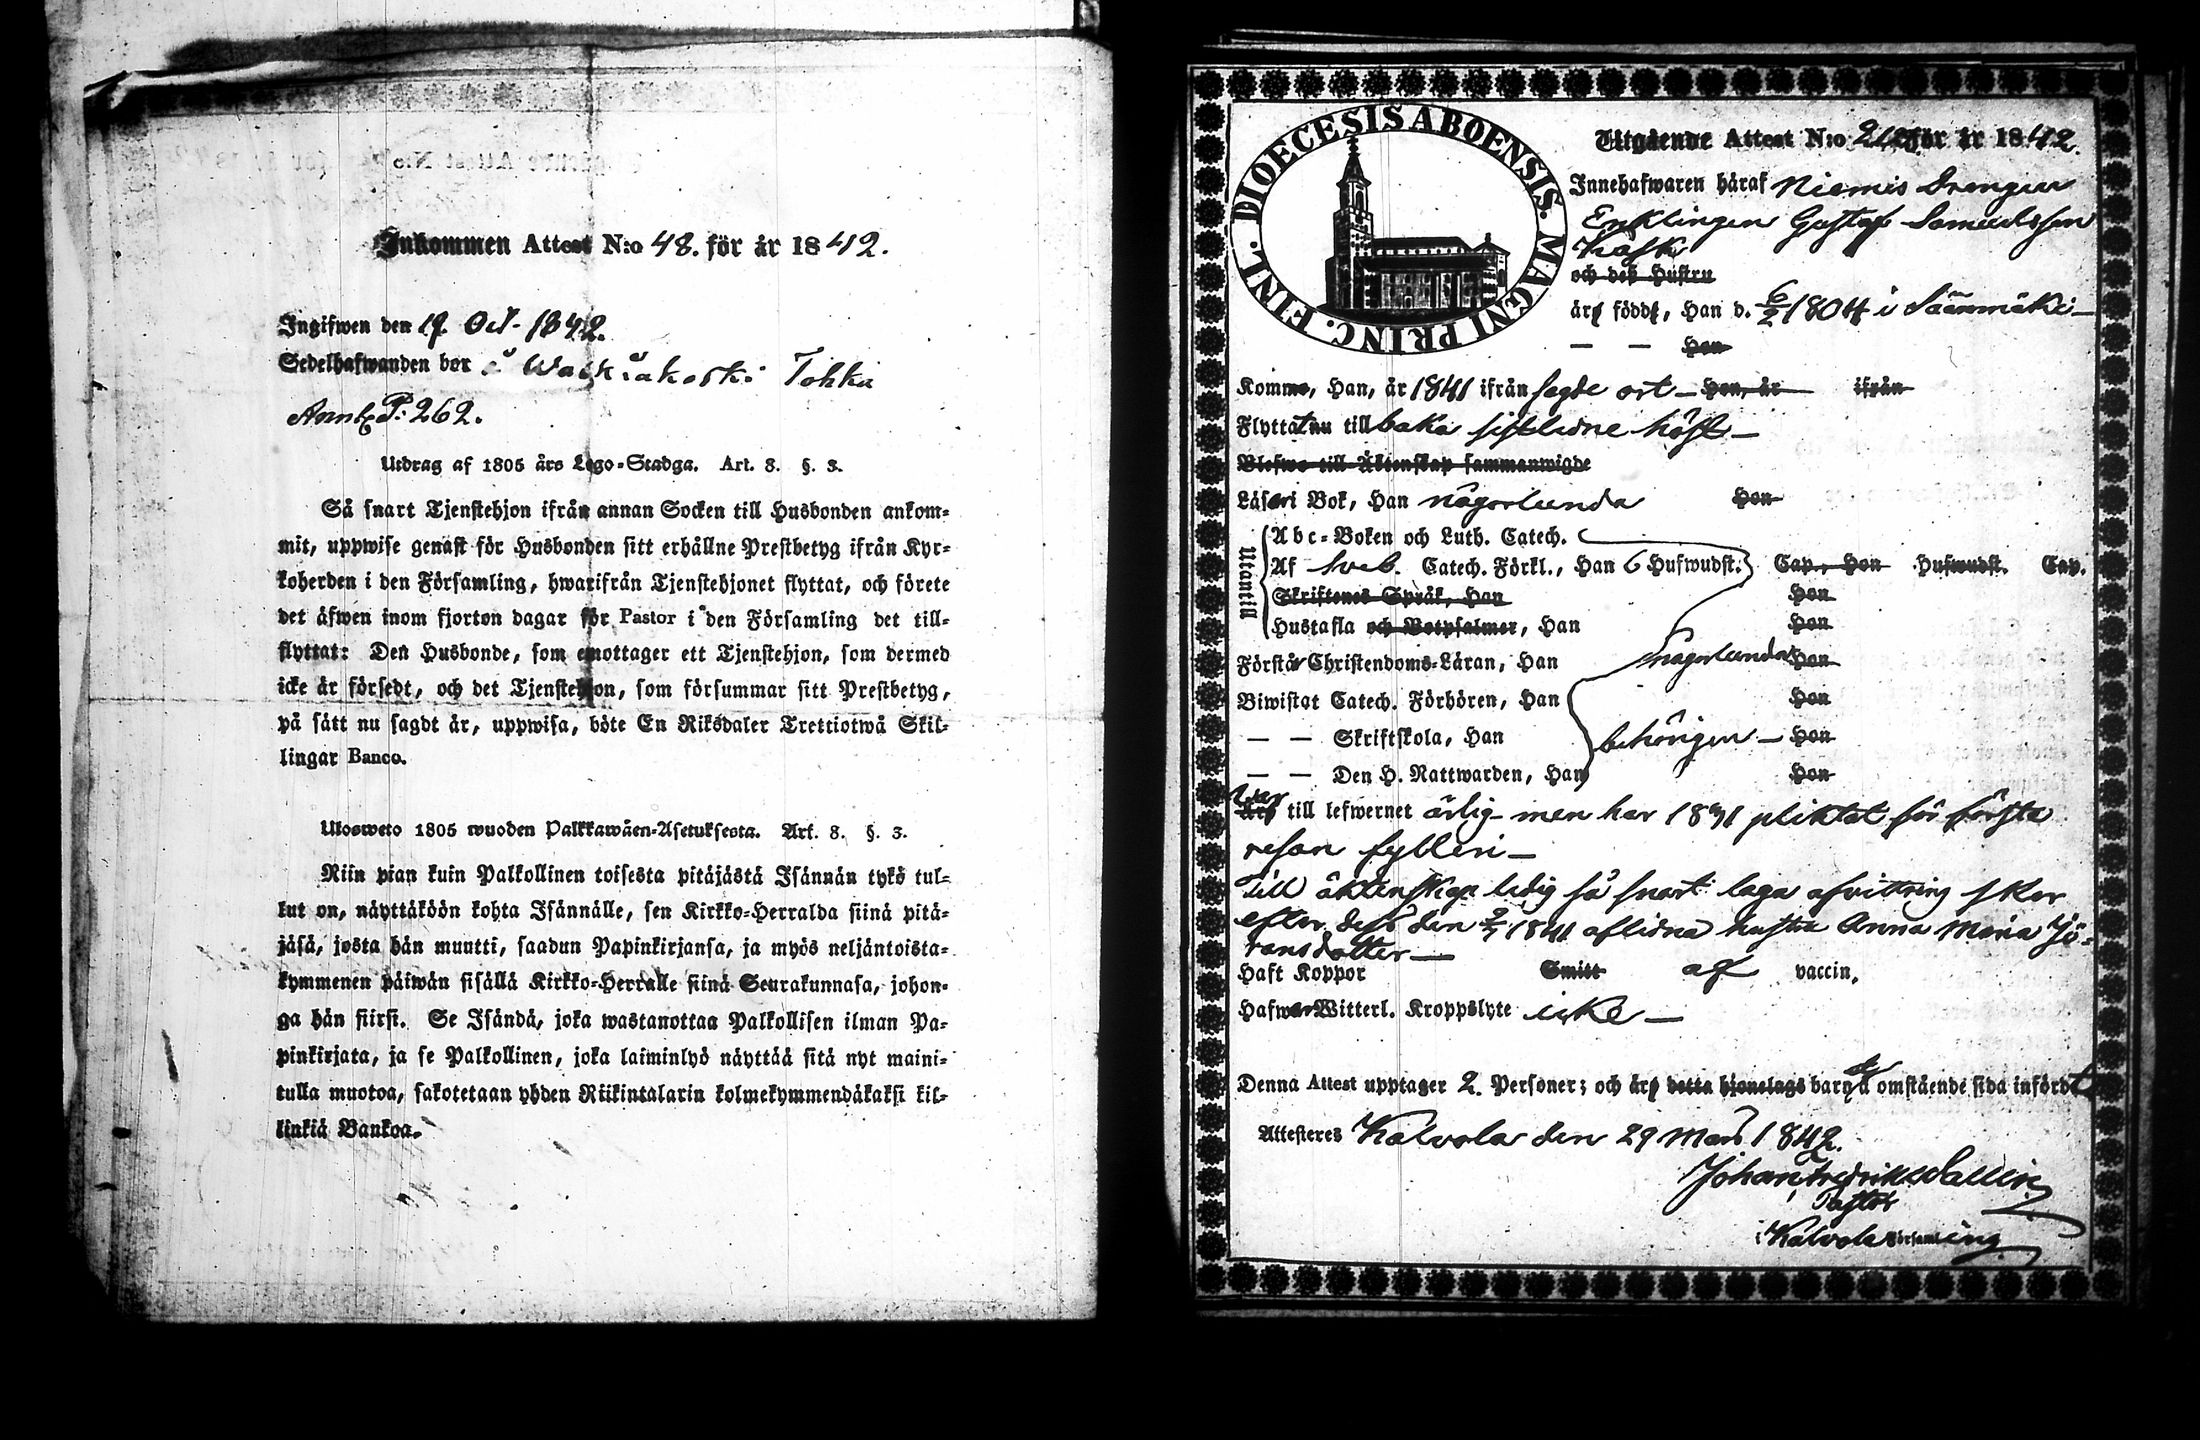 Inkommen Attest N:o 48. för år 1842.
Ingifwen den 19. Oct. 1842.
Sedelhafwanden bor å Wackiakoski Tohka
Annex P: 262.
Utdrag af 1805 års Lego-Stadga. Art. 8. §. 3.
Så snart Tjenstehjon ifrån annan Socken till Husbonden ankom-
mit, uppwise genast för Husbonden sitt erhållne Prestbetyg ifrån Kyr-
koherden i den Församling, hwarifrån Tjenstehjonet flyttat, och förete
det äfwen inom fjorton dagar för Pastor i den Församling det till-
flyttat: Den Husbonde, som emottager ett Tjenstehjon, som dermed
icke är försedt, och det Tjenstehjon, som försummar sitt Prestbetyg,
på sätt nu sagdt är, uppwisa, böte En Riksdaler Trettiotwå Skil-
lingar Banco.
Ulosweto 1805 wuoden Palkkawäen-Asetuksesta. Art. 8. §. 3.
Niin pian kuin Palkollinen toisesta pitäjästä Isännän tykö tul-
lut on, näyttäköön kohta Isännälle, sen Kirkko-Herralda siinä pitä-
jäsä, josta hän muutti, saadun Papinkirjansa, ja myös neljäntoista-
kymmenen päiwän sisällä Kirkko-Herralle siinä Seurakunnasa, johon-
ga hän siirsi. Se Isändä, joka wastanottaa Palkollisen ilman Pa-
pinkirjata, ja se Palkollinen, joka laiminlyö näyttää sitä nyt maini-
tulla muotoa, sakotetaan yhden Riikintalarin kolmekymmendäkaksi kil-
linkiä Bankoa.
DIOECESIS ABOENSIS. MAGNI PRINC. FINL.
Utgående Attest N:o för år 1842.
Innehafwaren häraf Niemis Drengen
Enklingen Gustaf Samuelsson
Kask
och des Hustru
är född, Han d. 6/2 1804 i Säänmäki
— — Hon
Komme, Han, år 1841 ifrån sagde ort — Hon, år ifrån
Flyttat nu tillbaka sistledne höst —
Blefwo till Äktenskap sammanwigde
Läser i Bok, Han någorlunda Hon
Utantill
Abc-Boken och Luth. Catech.
Af Sveb. Catech. Förkl., Han 6 Hufwudst. Cap., Hon Hufwudst. Cap.
Skriftenes Språk, Han Hon
Hustafla och Botpsalmer, Han Hon
Förstår Christendoms-Läran, Han någorlunda Hon
Biwistat Catech. Förhören, Han Hon
— — Skriftskola, Han behörigen — Hon
— — Den H. Nattwarden, Han Hon
Är till lefwernet ärlig men har 1831 pliktat för första
resan fylleri —
Till äktenskap ledig så snart laga afvittring sker
efter dess den 2/7 1841 aflidna hustru Anna Maria Jö-
ransdotter —
Haft Koppor Smitt af vaccin.
Hafwer Witterl. Kroppslyte icke —
Denna Attest upptager 2. Personer; och är detta hjonelags barn å omstående sida infördt
Attesteres Kalvola den 29 Mars 1842.
Johan Fredrik Wallin
Pastor
i Kalvola Församling